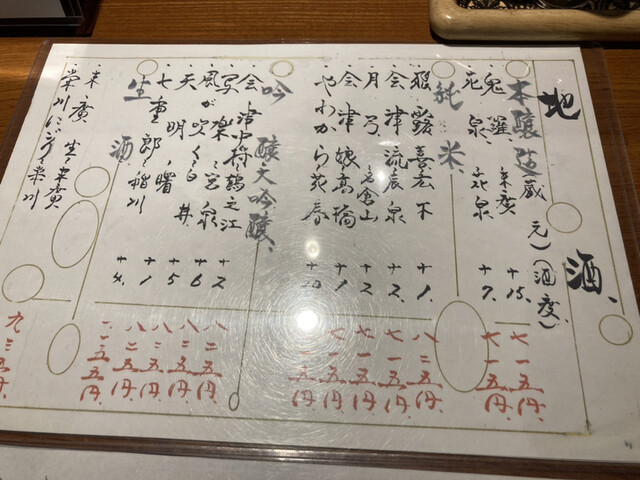 地酒、(蔵元)(酒度)
本醸造
鬼羅 末廣 +15. 七一五円.
花泉 花泉 +7. 七一五円.
純米、
飛露喜 広木 +1. 八二五円.
会津流 辰泉 +2. 七一五円.
月弓 +2 七一五円.
会津娘 高橋 +1 七一五円.
やわから 花春 一五五円
吟醸大吟醸、
会津中将 鶴乃江 +2 八二五円.
写楽 宮泉 +6 八三五円.
風が吹く 白井 +5 八二五円.
天明 曙 +1 八二五円.
七重郎 稲川 +4. 一一五五円.
生酒、
末廣 生末廣
榮川 にごり 榮川 九三五円